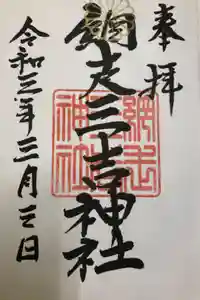 奉拝
網走三吉神社
網走神社
令和三年三月三日